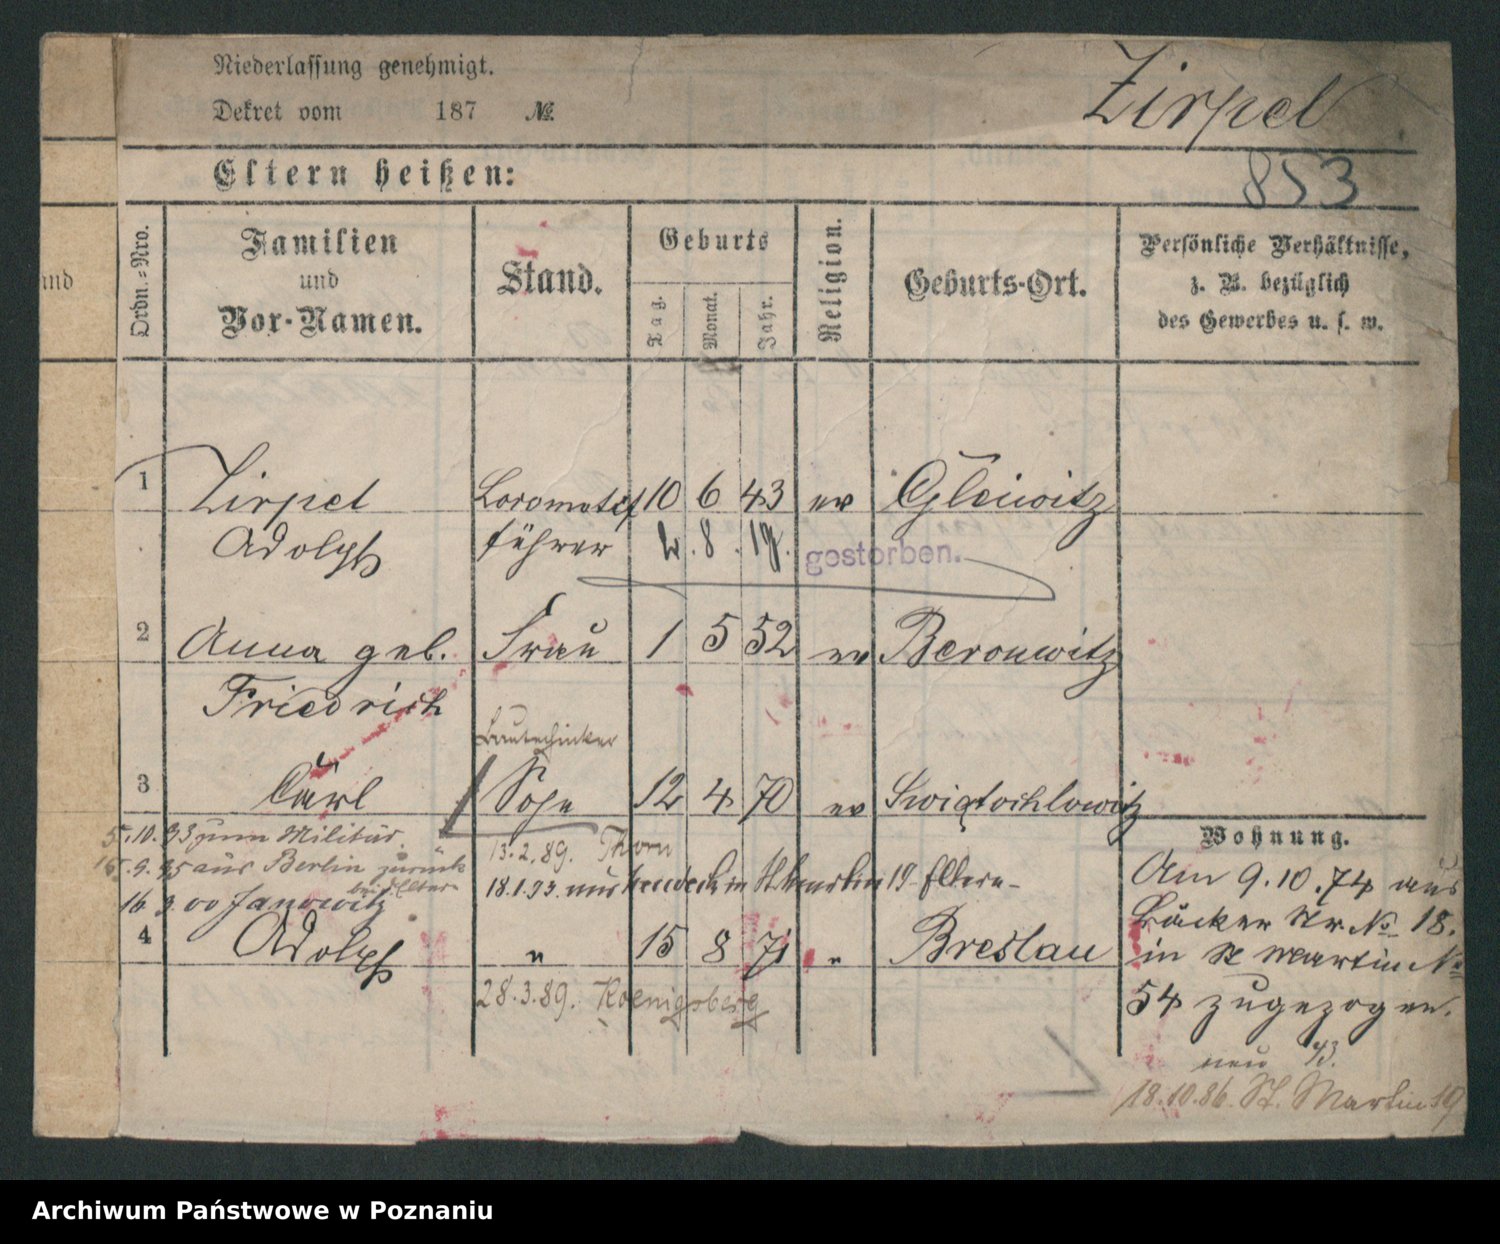 Niederlassung genehmigt.
Dekret vom 187 №.
Zirpel
853
Eltern heißen:
Ordn.=Nro.
Familien
und
Vor-Namen.
Stand.
Geburts
Tag.
Monat.
Jahr.
Religion.
Geburts-Ort.
Persönliche Verhältnisse,
z. B. bezüglich
des Gewerbes u. s. w.
1 Zirpel Locomotif 10 6 43 ev Gleiwitz
Adolph führer 8.
gestorben.
2 Anna geb. Frau 1 5 52 ev Beronwitz
Friedrich
Bautechniker
3 Carl Sohn 12 4 70 ev Swiętochlowitz
5.10.93 zum Militär. 13.2.89. Thorn
15.9.95 aus Berlin zurück
bei Eltern
18.1.93. aus in St Martin 19 Eltern
16 9 00 Janowitz
4 Adolph " 15 8 71 " Breslau
28.3.89. Koenigsberg
Wohnung.
Am 9.10.74 aus
Bäcker Str. № 18.
in St Martin №
54 zugezogen.
neu 43.
18.10.86. St. Martin 19
Archiwum Państwowe w Poznaniu